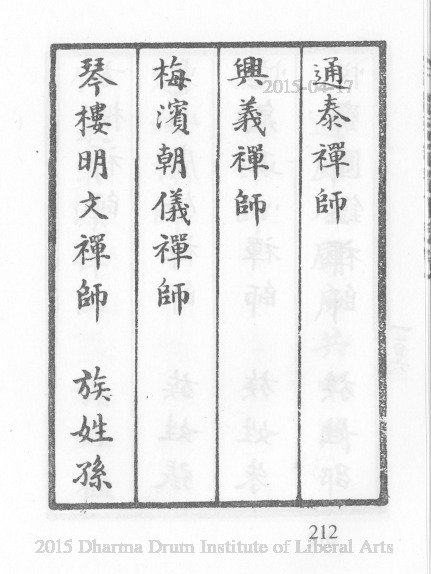 通泰禪師
興義禪師
梅濱朝儀禪師
琴樓明文禪師 族姓孫
2015-04-17
212
2015 Dharma Drum Institute of Liberal Arts